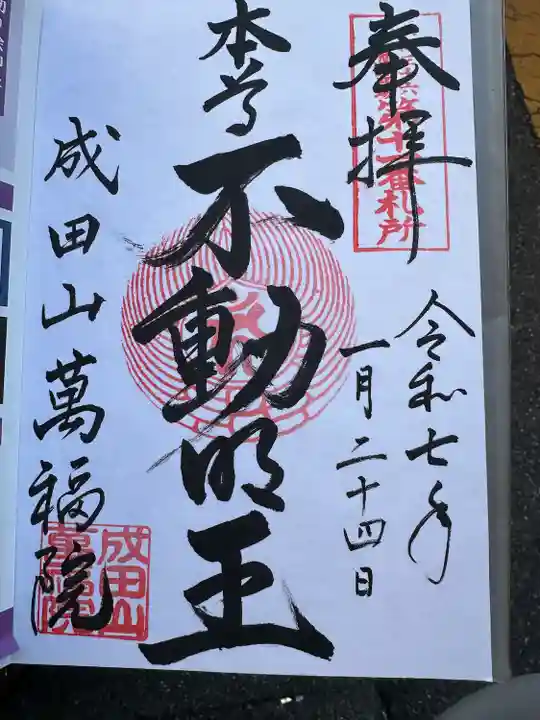 奉拝
令和七年
一月二十四日
本尊
不動明王
成田山萬福院
成田山
萬福院
番札所